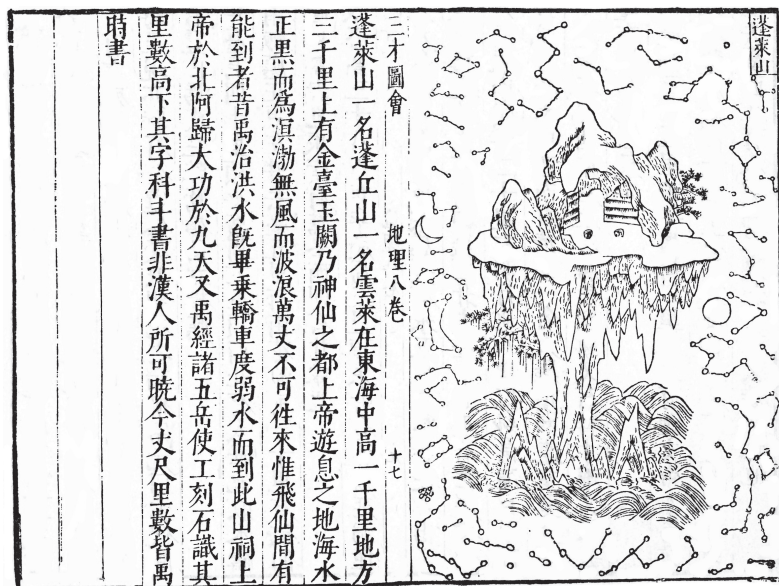 蓬萊山
三才圖會 地理八卷 十七
蓬萊山一名蓬丘山一名雲萊在東海中高一千里地方
三千里上有金臺玉闕乃神仙之都上帝遊息之地海水
正黑而爲溟渤無風而波浪萬丈不可徃來惟飛仙間有
能到者昔禹治洪水旣畢乗轎車度弱水而到此山祠上
帝於北阿歸大功於九天又禹經諸五岳使工刻石識其
里數高下其字科斗書非漢人所可曉今丈尺里數皆禹
時書